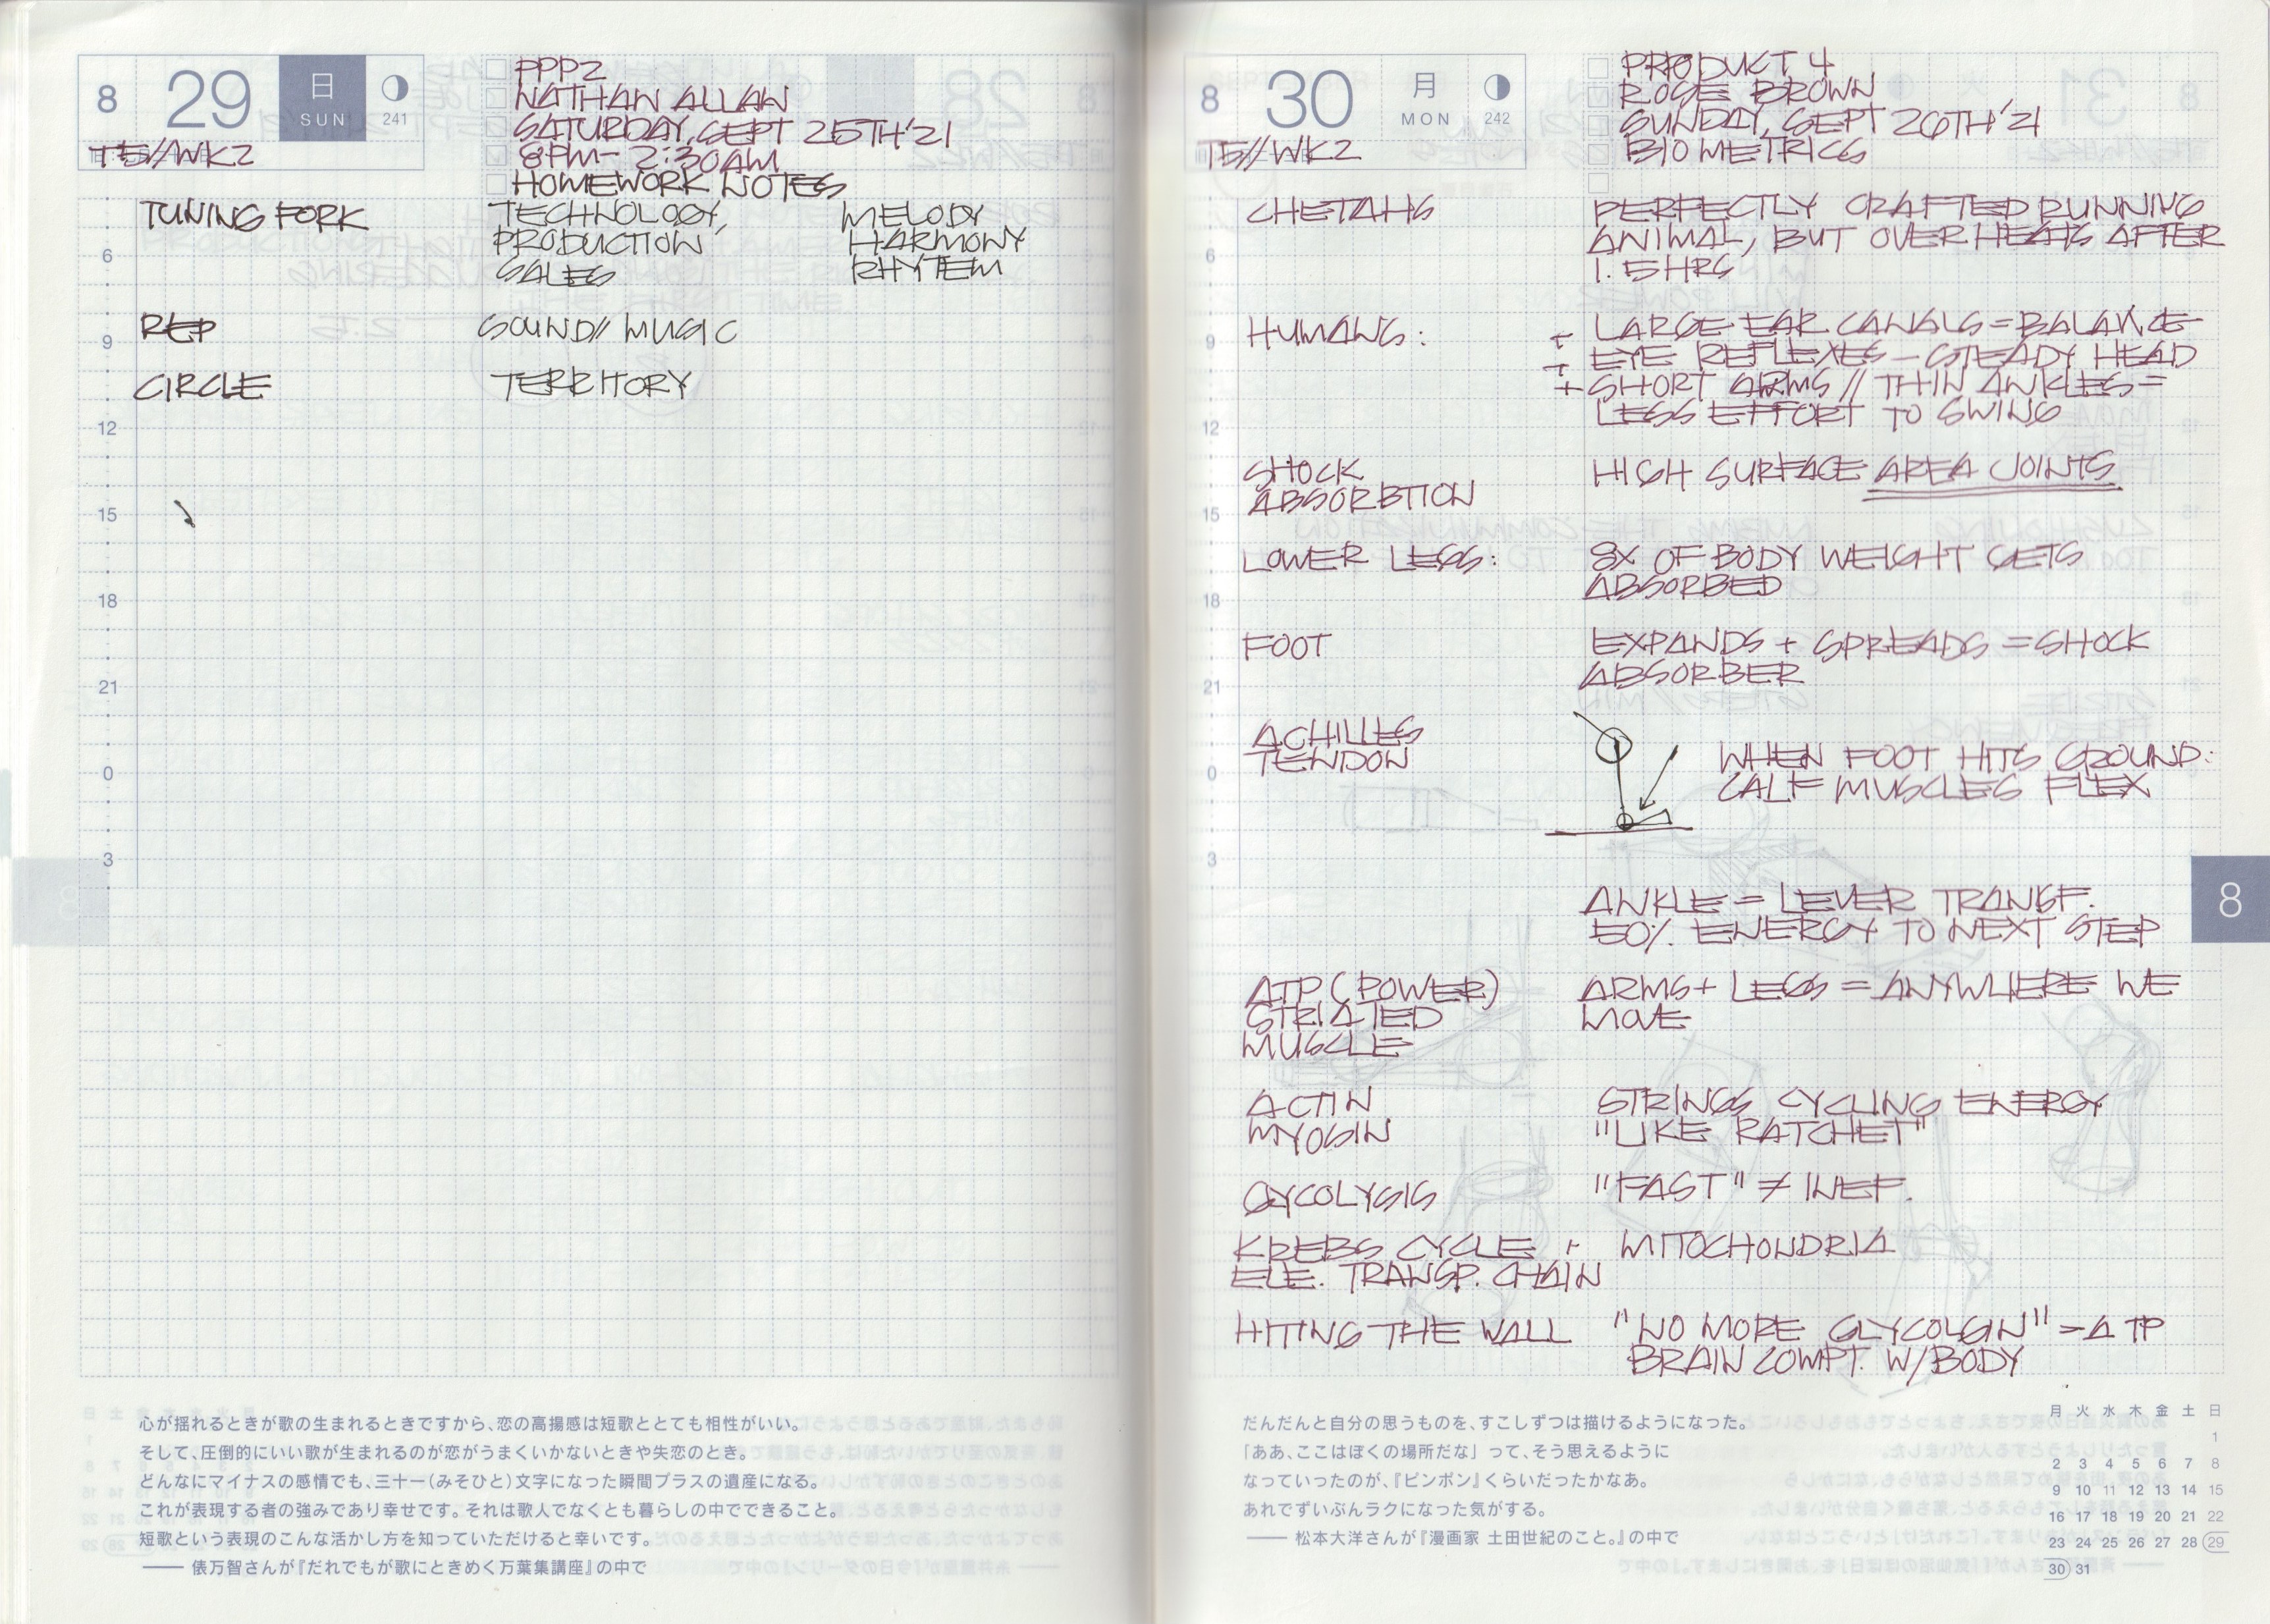 8 29 日 SUN 241
T5//WK2
PPP2
NATHAN ALLAN
SATURDAY, SEPT 25TH '21
8PM - 2:30AM
HOMEWORK NOTES
TUNING FORK TECHNOLOGY, MELODY
PRODUCTION HARMONY
SALES RHYTEM
REP SOUND// MUSIC
CIRCLE TERRITORY
6
9
12
15
18
21
0
3
8
心が揺れるときが歌の生まれるときですから、恋の高揚感は短歌ととても相性がいい。
そして、圧倒的にいい歌が生まれるのが恋がうまくいかないときや失恋のとき。
どんなにマイナスの感情でも、三十一（みそひと）文字になった瞬間プラスの遺産になる。
これが表現する者の強みであり幸せです。それは歌人でなくとも暮らしの中でできること。
短歌という表現のこんな活かし方を知っていただけると幸いです。
—— 俵万智さんが『だれでもが歌にときめく万葉集講座』の中で
8 30 月 MON 242
T5//WK2
PRODUKT 4
ROSE BROWN
SUNDAY, SEPT 26TH '21
BIOMETRICS
CHETAHS PERFECTLY CRAFTED RUNNING
ANIMAL, BUT OVERHEATS AFTER
1.5HRS
HUMANS: + LARGE EAR CANALS = BALANCE
+ EYE REFLEXES - STEADY HEAD
+ SHORT ARMS // THIN ANKLES =
LESS EFFORT TO SWING
SHOCK HIGH SURFACE AREA JOINTS
ABSORBTION
LOWER LEGS: 8X OF BODY WEIGHT GETS
ABSORBED
FOOT EXPANDS + SPREADS = SHOCK
ABSORBER
ACHILLES
TENDON WHEN FOOT HITS GROUND:
CALF MUSCLES FLEX
ANKLE = LEVER TRANSF.
50% ENERGY TO NEXT STEP
ATP (POWER) ARMS + LEGS = ANYWHERE WE
STRIATED MOVE
MUSCLE
ACTIN STRINGS CYCLING ENERGY
MYOSIN "LIKE RATCHET"
GYCOLYSIS "FAST" ≠ INEF.
KREBS CYCLE + MITOCHONDRIA
ELE. TRANSP. CHAIN
HITING THE WALL "NO MORE GLYCOLGIN" → ATP
BRAIN COMPT. W/BODY
6
9
12
15
18
21
0
3
8
だんだんと自分の思うものを、すこしずつは描けるようになった。
「ああ、ここはぼくの場所だな」って、そう思えるように
なっていったのが、『ピンポン』くらいだったかなあ。
あれでずいぶんラクになった気がする。
—— 松本大洋さんが『漫画家 土田世紀のこと。』の中で
月 火 水 木 金 土 日
1
2 3 4 5 6 7 8
9 10 11 12 13 14 15
16 17 18 19 20 21 22
23 24 25 26 27 28 29
30 31